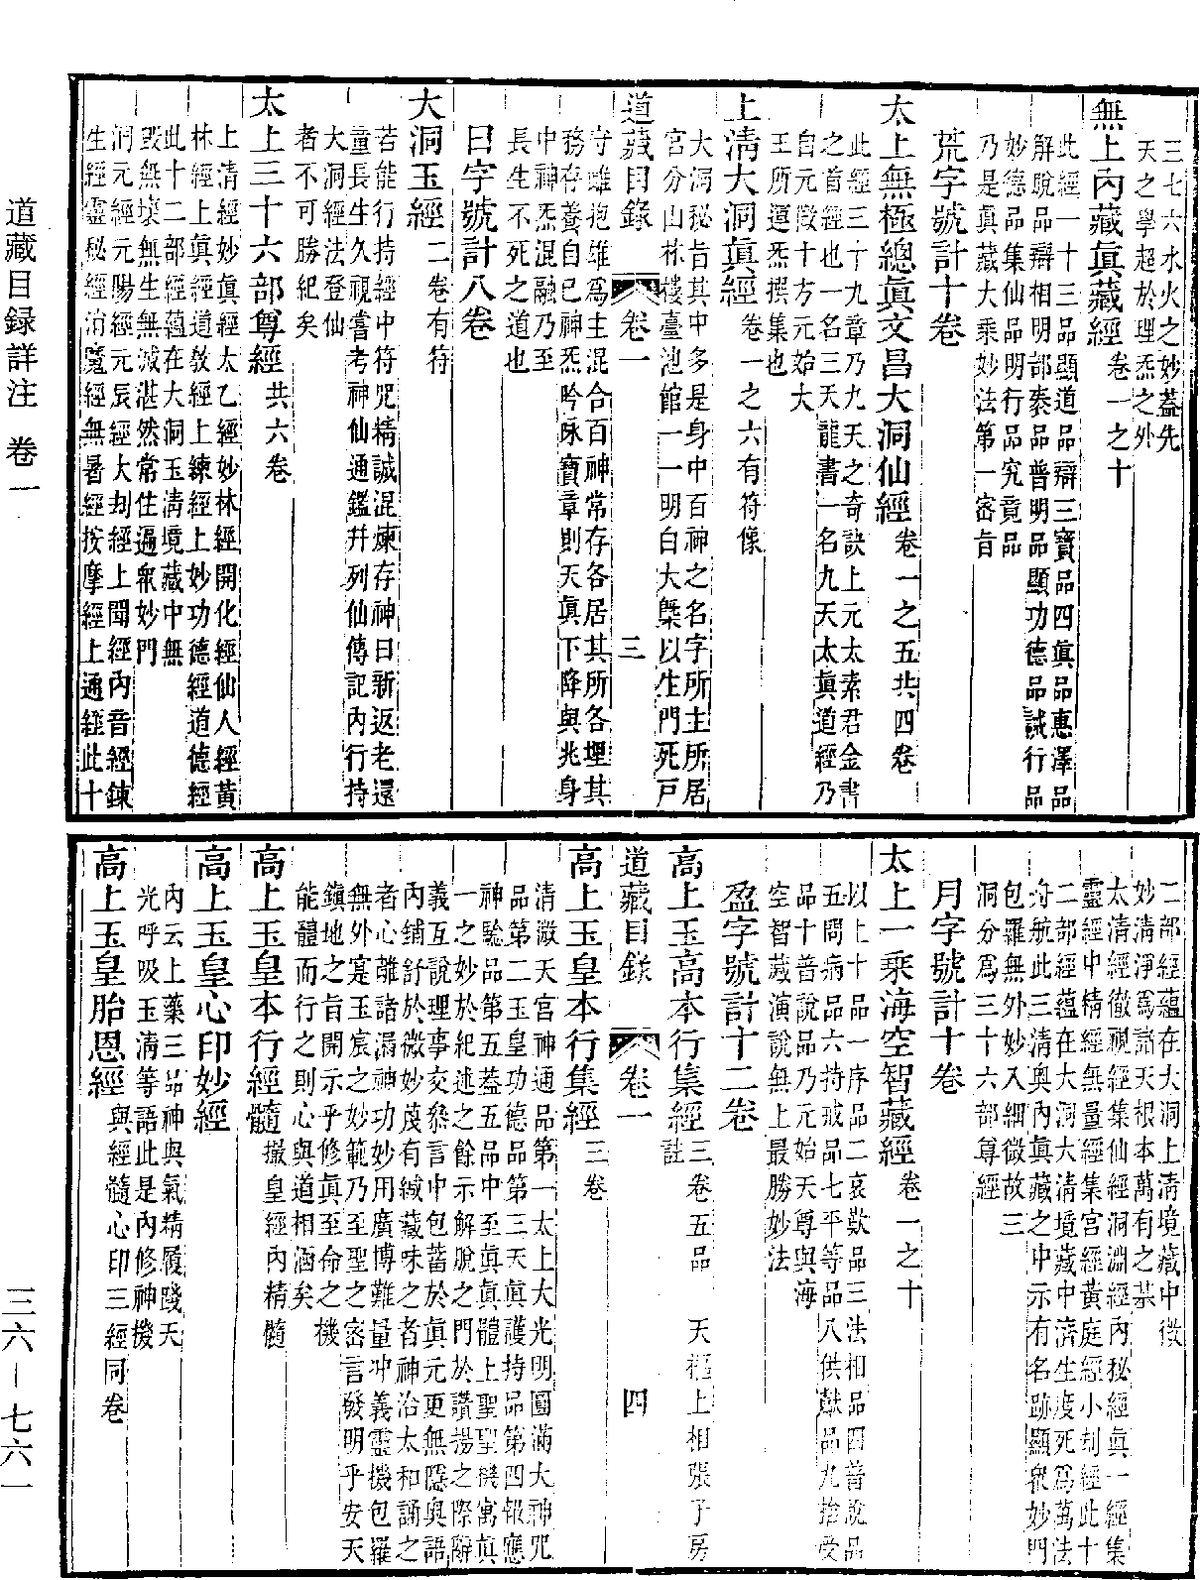 三七六水火之妙蓋先
天之學超於理炁之外
無上內藏眞藏經卷一之十
此經一十三品顯道品辯三寶品四眞品惠澤品
解脫品辯相明部泰品普明品顯功德品試行品
妙德品集仙品明行品究竟品
乃是眞藏大乘妙法第一密旨
荒字號計十卷
太上無極總眞文昌大洞仙經卷一之五共四卷
此經三十九章乃九天之奇訣上元太素君金書
之首經也一名三天龍書一名九天太眞道經乃
自元徵十方元始大
王所運炁撰集也
上清大洞眞經卷一之六有符像
大洞秘旨其中多是身中百神之名字所主所居
宮分山林樓臺池館一一明白大槩以生門死戶
道藏目錄 卷一 三
守雌抱雄爲主混合百神常存各居其所各理其
務存養自已神炁吟咏寶章則天眞下降與兆身
中神炁混融乃至
長生不死之道也
日字號計八卷
大洞玉經二卷有符
若能行持經中符咒精誠混煉存神日新返老還
童長生久視嘗考神仙通鑑幷列仙傳記內行持
大洞經法登仙
者不可勝紀矣
太上三十六部尊經共六卷
上清經妙眞經太乙經妙林經開化經仙人經黃
林經上眞經道敎經上練經上妙功德經道德經
此十二部經藴在大洞玉清境藏中無
毀無壞無生無滅湛然常住遍衆妙門
洞元經元陽經元辰經大刧經上聞經內音經鍊
生經靈秘經消魔經無暑經按摩經上通經此十
二部經蘊在大洞上清境藏中微
妙清淨爲諸天根本萬有之基
太清經徹視經集仙經洞淵經內秘經眞一經集
靈經中精經無量經集宮經黃庭經小刧經此十
二部經蘊在大洞大清境藏中濟生度死爲萬法
舟航此三清奧內眞藏之中示有名跡顯衆妙門
包羅無外妙入細微故三
洞分爲三十六部尊經
月字號計十卷
太上一乘海空智藏經卷一之十
以上十品一序品二哀歎品三法相品四普說品
五問病品六持戒品七平等品八供獻品九捨受
品十普說品乃元始天尊與海
空智藏演說無上最勝妙法
盈字號計十二卷
高上玉高本行集經三卷五品 天樞上相張子房
註
道藏目錄 卷一 四
高上玉皇本行集經三卷
清微天宮神通品第一太上大光明圓滿大神咒
品第二玉皇功德品第三天眞護持品第四報應
神驗品第五蓋五品中至眞眞體上聖聖機寓眞
一之妙於紀述之餘示解脫之門於讚揚之際辭
義互說理事交叅言中包蓄於眞元更無隱奧語
內鋪舒於微妙蔑有緘藏味之者神洽太和誦之
者心離諸漏神功妙用廣博難量冲義靈機包羅
無外寔玉宸之妙範乃至聖之密言發明乎安天
鎭地之旨開示乎修眞至命之機
能體而行之則心與道相涵矣
高上玉皇本行經髓撮皇經內精髓
高上玉皇心印妙經
內云上藥三品神與氣精履踐天
光呼吸玉清等語此是內修神機
高上玉皇胎息經與經髓心印三經同卷
道藏目録詳注 卷一
三六—七六一